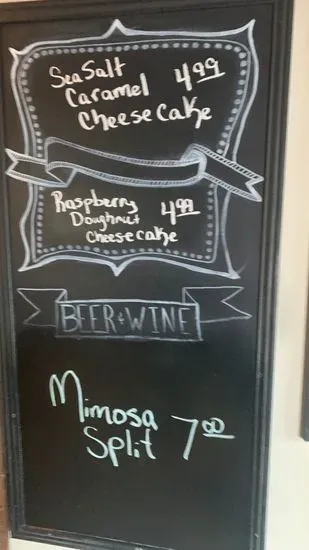 Sea Salt
Caramel 4.99
Cheese Cake
Raspberry
Doughnut 4.99
Cheesecake
BEER & WINE
Mimosa
Split 7.00